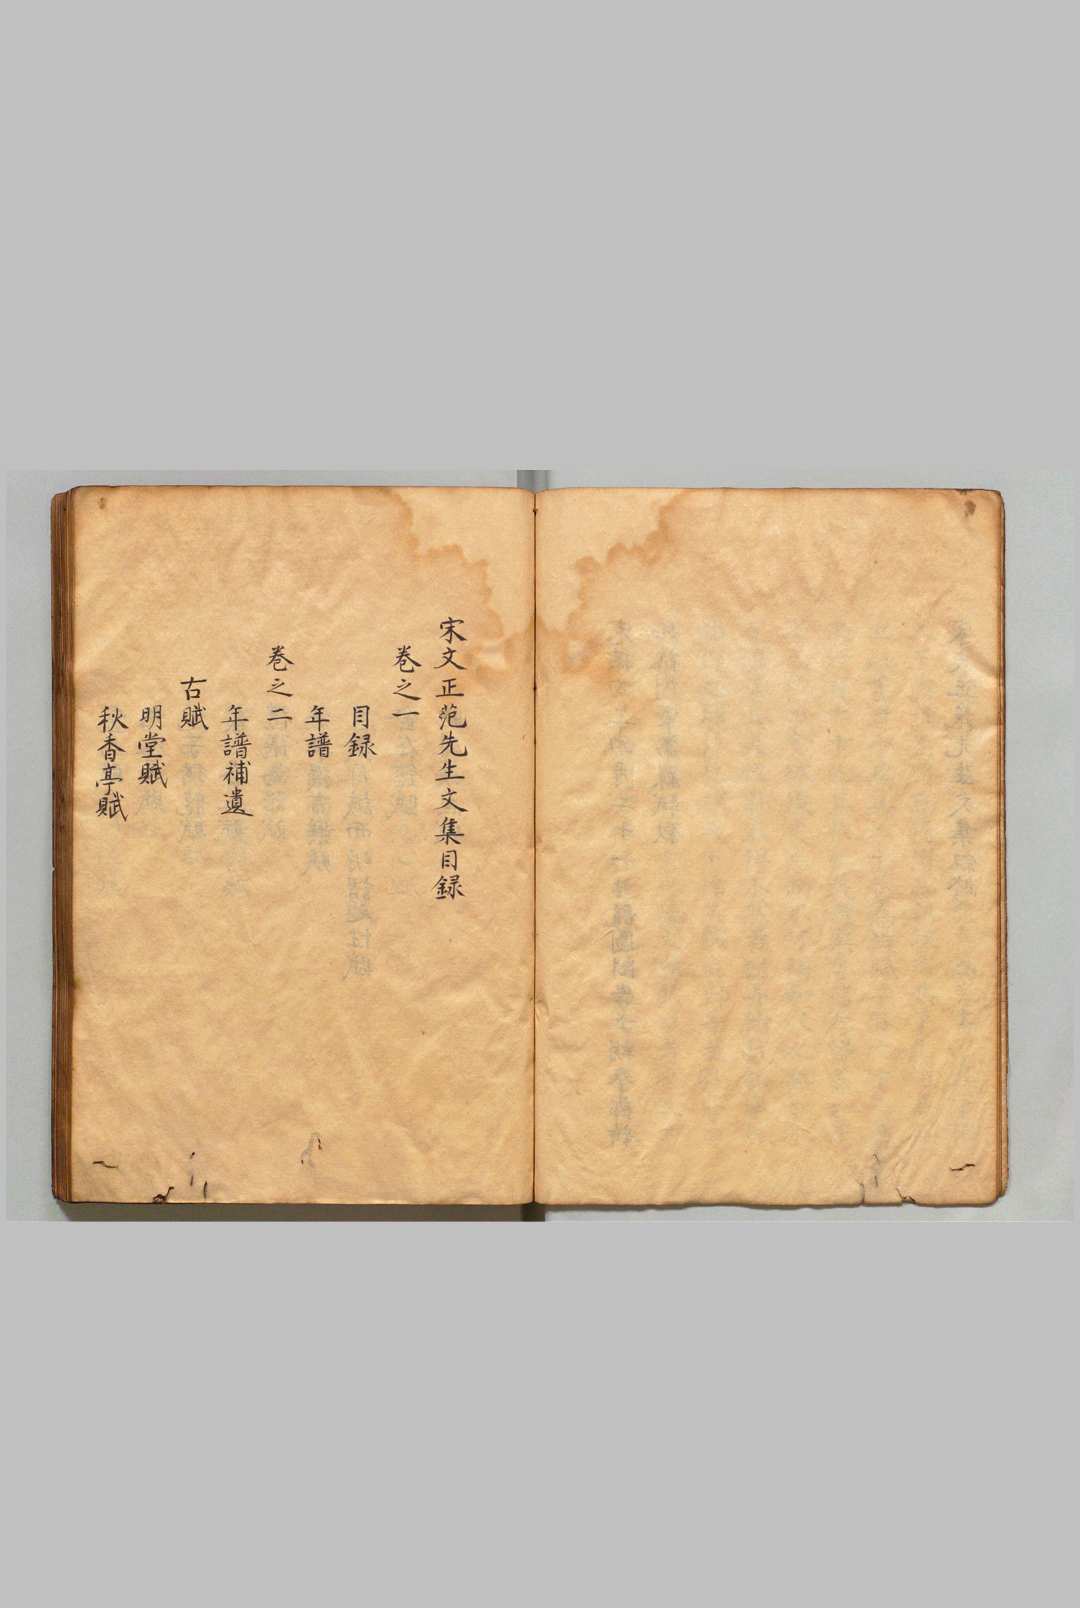 宋文正范先生文集目録
卷之一
目録
年譜
卷之二
年譜補遺
古賦
明堂賦
秋香亭賦